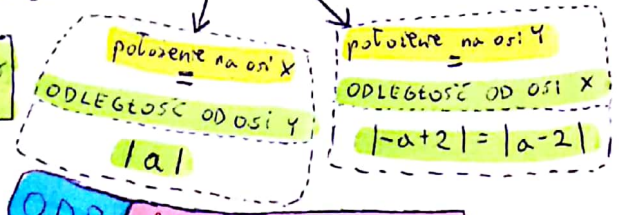 położenie na osi X
=
ODLEGŁOŚĆ OD OSI Y
|a|
położenie na osi Y
=
ODLEGŁOŚĆ OD OSI X
|-a+2| = |a-2|